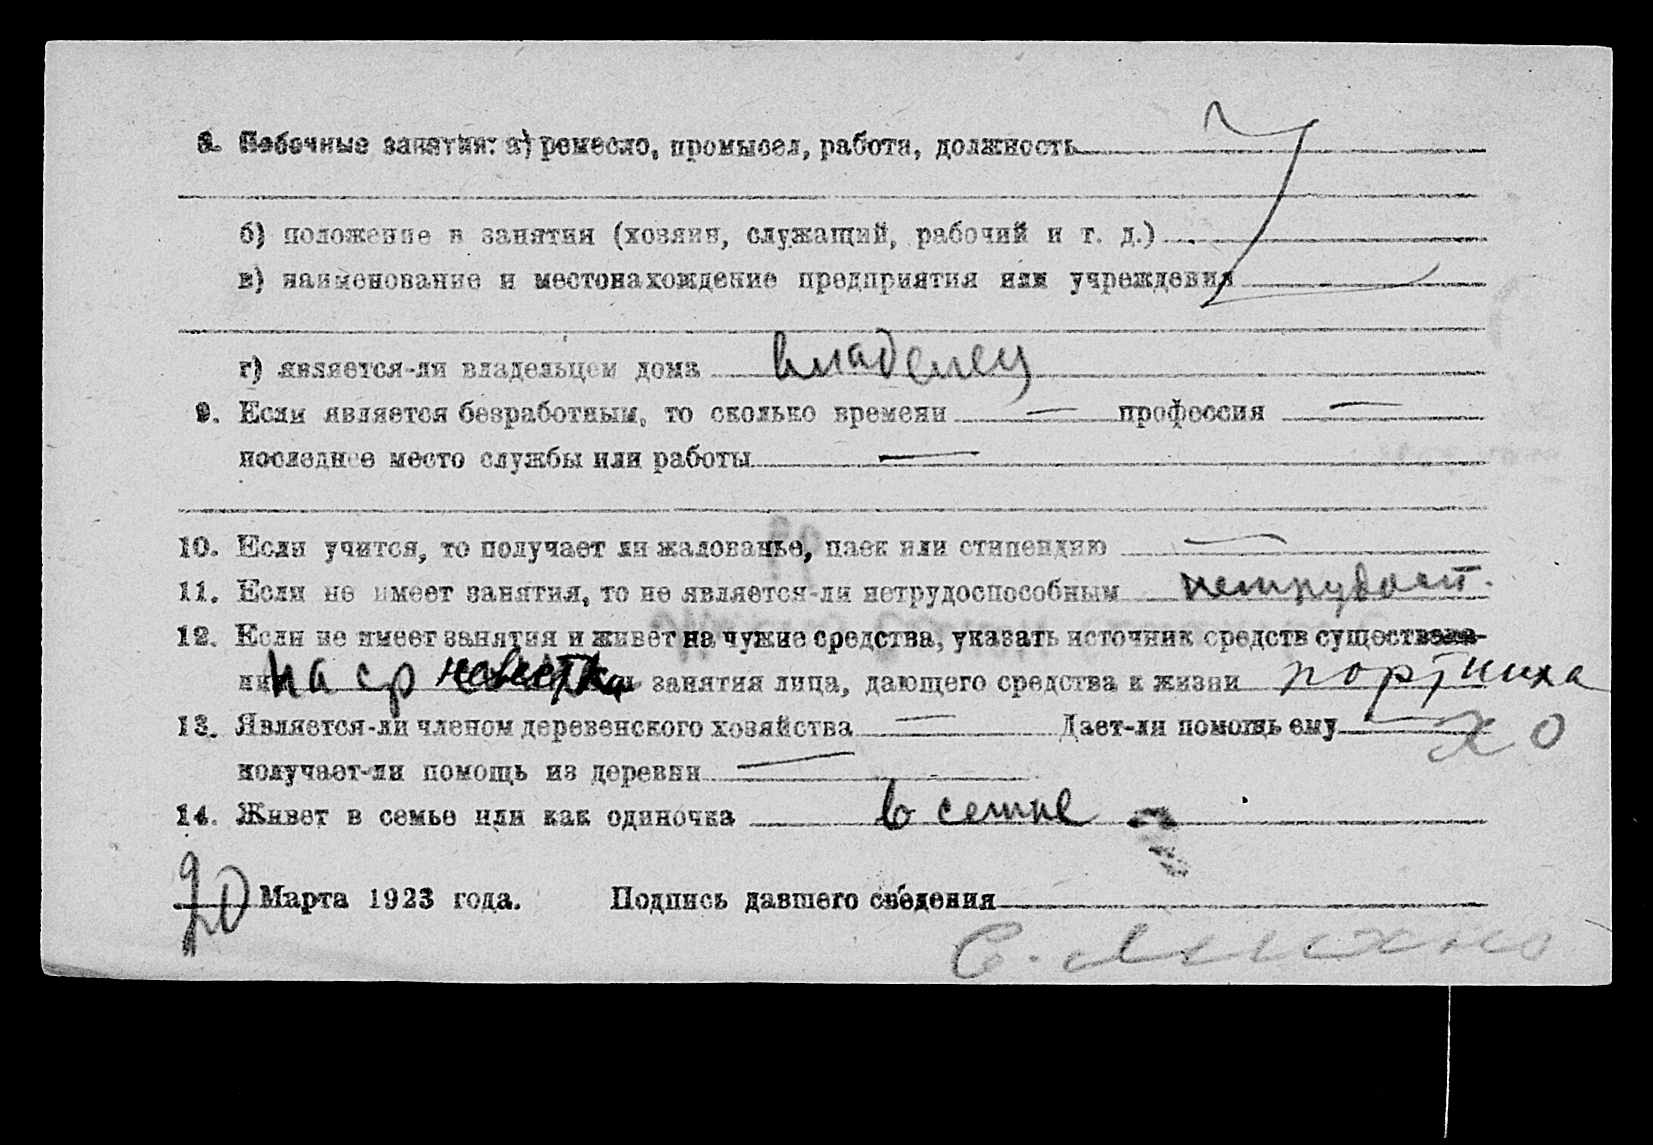 8. Побочные занятия: а) ремесло, промысел, работа, должность
б) положение в занятии (хозяин, служащий, рабочий и т. д.)
в) наименование и местонахождение предприятия или учреждения
г) является-ли владельцем дома владелец
9. Если является безработным, то сколько времени — профессия —
последнее место службы или работы —
10. Если учится, то получает ли жалованье, паек или стипендию —
11. Если не имеет занятия, то не является-ли нетрудоспособным нетрудосп.
12. Если не имеет занятия и живет на чужие средства, указать источник средств существова-
ния на ср невестки занятия лица, дающего средства к жизни портниха
13. Является-ли членом деревенского хозяйства — Дает-ли помощь ему —
хо
получает-ли помощь из деревни —
14. Живет в семье или как одиночка в семье
20 Марта 1923 года. Подпись давшего сведения
С.